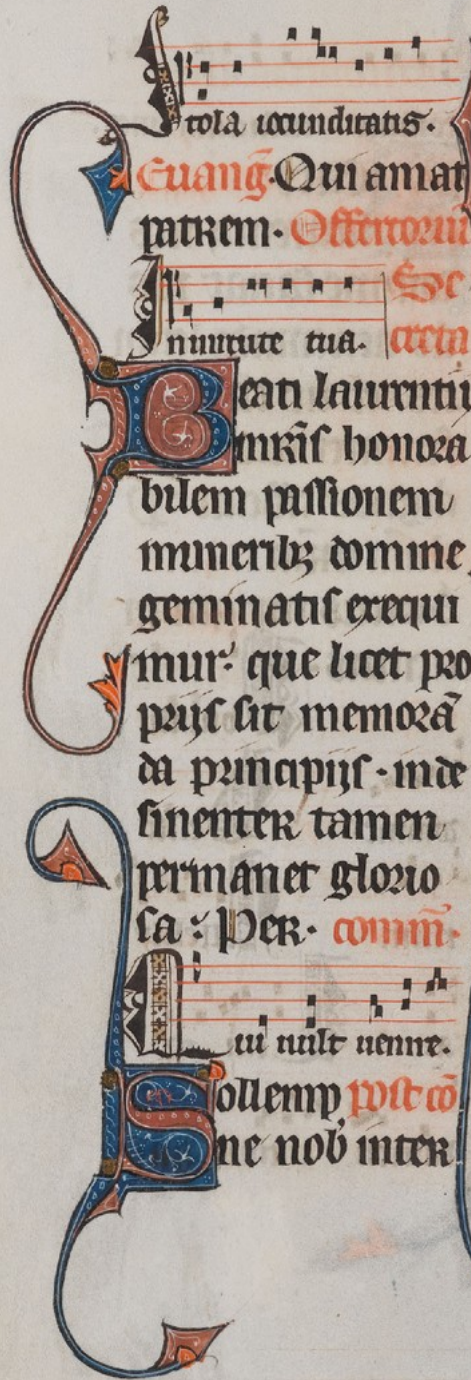 Stola iocunditatis.
Euang̃. Qui amat
patrem. Offertoriũ
In uirtute tua. Se
creta
Beati laurentij
mr̃is honora
bilem passionem
muneribꝫ domine
geminatis exequi
mur. que licet pro
prijs sit memorã
da principijs. inde
sinenter tamen
permanet glorio
sa. Per. comm̃.
Qui uult uenire.
Sollemp post cõ
ne nob̾ inter